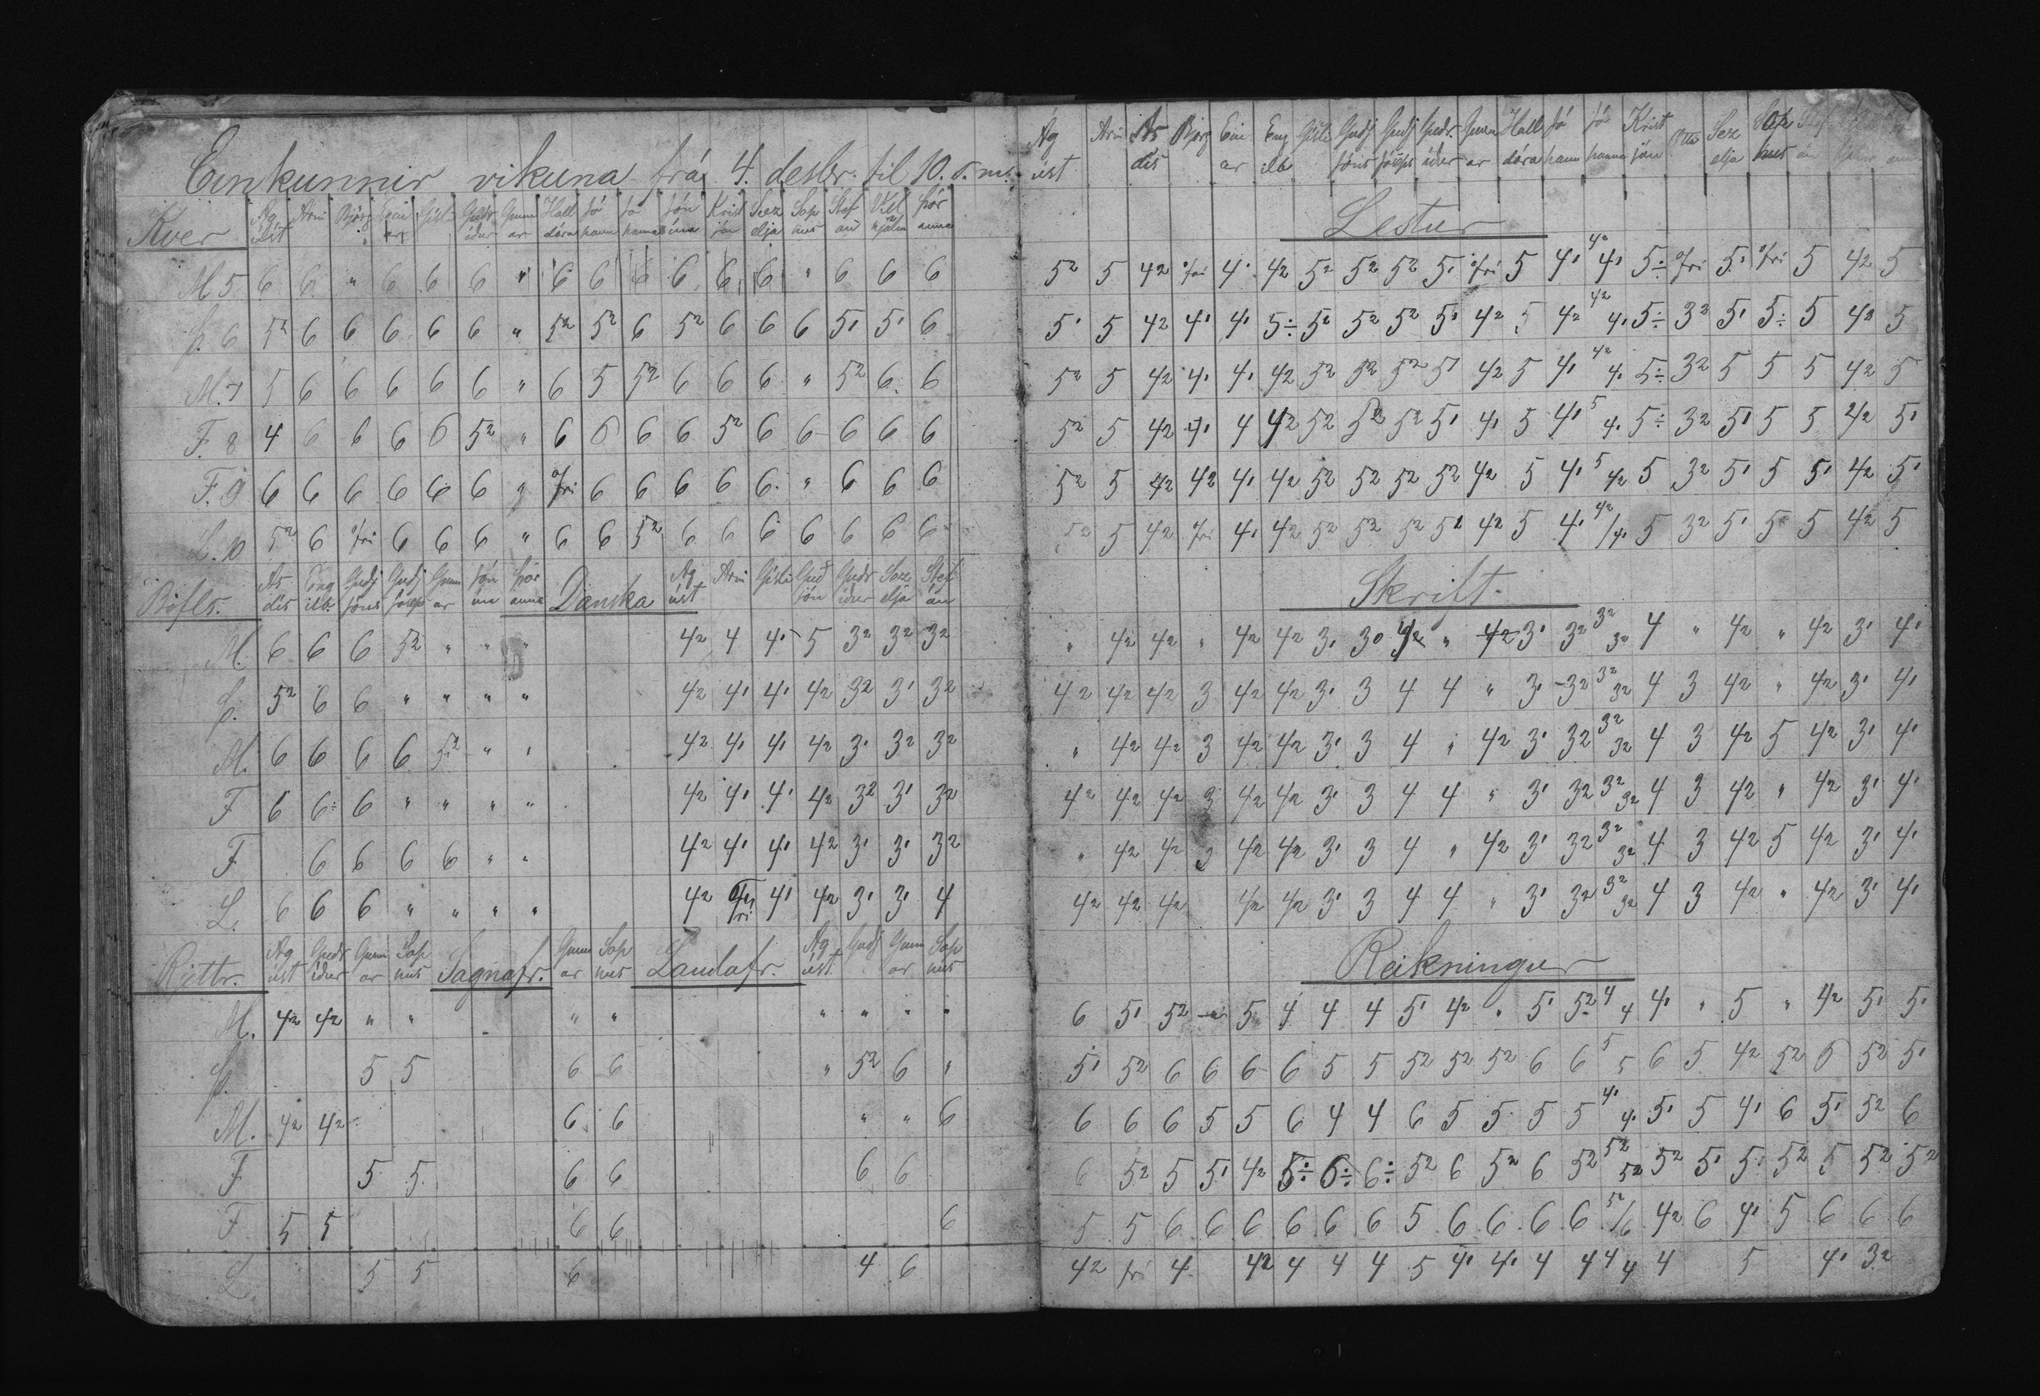 Einkunnir vikuna frá 4. desbr. til 10. s. m.
Kver Ág úst Árni Björg Ein ar Gísli Guðr íður Gunn ar Hall dóra Jó hann Jó hanna Jón ína Krist ján Sez elja Sop nus Stef án Vil hjálm Þór anna
M. 5 6 6 " 6 6 6 " 6 6 6 6 6 6 " 6 6 6
Þ. 6 5² 6 6 6 6 6 " 5² 5² 6 5² 6 6 6 5¹ 5¹ 6
M. 7 5 6 6 6 6 6 " 6 5 5² 6 6 6 " 5² 6 6
F. 8 4 6 6 6 6 5² " 6 6 6 6 5² 6 6 6 6 6
F. 9 6 6 6 6 6 6 fri 6 6 6 6 6 " 6 6 6
L. 10 5² 6 fri 6 6 6 " 6 6 5² 6 6 6 6 6 6 6
Bifls. Ás dís Eng ilb. Guðj Jóns Guðj Jóseps Gunn ar Jón ína Þór anna Danska Ág úst Árni Gísli Guð jón Guðr íður Sez elja Stef án
M. 6 6 6 5² " " " 4² 4 4¹ 5 3² 3² 3²
Þ. 5² 6 6 " " " " 4² 4¹ 4¹ 4² 3² 3¹ 3²
M. 6 6 6 6 5² " " 4² 4¹ 4¹ 4² 3¹ 3² 3²
F 6 6 6 " " " " 4² 4¹ 4¹ 4² 3² 3¹ 3²
F. 6 6 6 6 " " 4² 4¹ 4¹ 4² 3¹ 3¹ 3²
L. 6 6 6 " " " " 4² fri 4¹ 4² 3¹ 3¹ 4
Rittr. Ág úst Guðr íður Gunn ar Sop nus Sagnafr. Gunn ar Sop nus Landafr. Ág úst Guðj Gunn ar Sop nus
M. 4² 4² " " " " " " " "
Þ. 5 5 6 6 " 5² 6 "
M. 4² 4² 6 6 " " 6
F 5 5 6 6 6 6
F 5 5 6 6 6
L 5 5 6 4 6
Ág úst Árni Ás dís Björg Ein ar Eng ilb Gísli Guðj Jóns Guðj Jóseps Guðr íður Gunn ar Hall dóra Jó hann Jó hanna Krist ján Otto Sez elja Sop nus
Lestur
5² 5 4² fri 4¹ 4² 5² 5² 5² 5¹ fri 5 4¹ 4² 4¹ 5÷ fri 5¹ fri 5 4² 5
5¹ 5 4² 4¹ 4¹ 5÷ 5² 5² 5² 5¹ 4² 5 4² 4² 4¹ 5÷ 3² 5¹ 5÷ 5 4² 5
5² 5 4² 4¹ 4¹ 4² 5² 5² 5² 5¹ 4² 5 4¹ 4² 4¹ 5÷ 3² 5 5 5 4² 5
5² 5 4² 4¹ 4 4² 5² 5² 5² 5¹ 4¹ 5 4¹ 5 4¹ 5÷ 3² 5¹ 5 5 4² 5¹
5² 5 4² 4² 4¹ 4² 5² 5² 5² 5² 4² 5 4¹ 5 4² 5 3² 5¹ 5 5¹ 4² 5¹
5² 5 4² fri 4¹ 4² 5² 5² 5² 5² 4² 5 4¹ 4²/4¹ 5 3² 5¹ 5 5 4² 5
Skrift.
" 4² 4² " 4² 4² 3¹ 3 4² " 4² 3¹ 3² 3² 3² 4 " 4² " 4² 3¹ 4¹
4² 4² 4² 3 4² 4² 3¹ 3 4 4 " 3¹ 3² 3² 3² 4 3 4² " 4² 3¹ 4¹
" 4² 4² 3 4² 4² 3¹ 3 4 " 4² 3¹ 3² 3² 3² 4 3 4² 5 4² 3¹ 4¹
4² 4² 4² 3 4² 4² 3¹ 3 4 4 " 3¹ 3² 3² 3² 4 3 4² " 4² 3¹ 4¹
" 4² 4² 3 4² 4² 3¹ 3 4 " 4² 3¹ 3² 3² 3² 4 3 4² 5 4² 3¹ 4¹
4² 4² 4² 4² 4² 3¹ 3 4 4 " 3¹ 3² 3² 3² 4 3 4² " 4² 3¹ 4¹
Reikningur
6 5¹ 5² " 5 4 4 4 5¹ 4² " 5¹ 5² 4 4 4¹ " 5 " 4² 5¹ 5¹
5¹ 5² 6 6 6 6 5 5 5² 5² 5² 6 6 5 5 6 5 4² 5² 6 5² 5¹
6 6 6 5 5 6 4 4 6 5 5 5 5 4¹ 4¹ 5¹ 5 4¹ 6 5¹ 5² 6
6 5² 5 5¹ 4² 5÷ 6÷ 6÷ 5² 6 5² 6 5² 5² 5² 5² 5¹ 5¹ 5² 5 5² 5²
5 5 6 6 6 6 6 6 5 6 6 6 6 5²/6 4² 6 4¹ 5 6 6 6
4² fri 4 4² 4 4 4 5 4¹ 4¹ 4 4 4 4 4 5 4¹ 3²